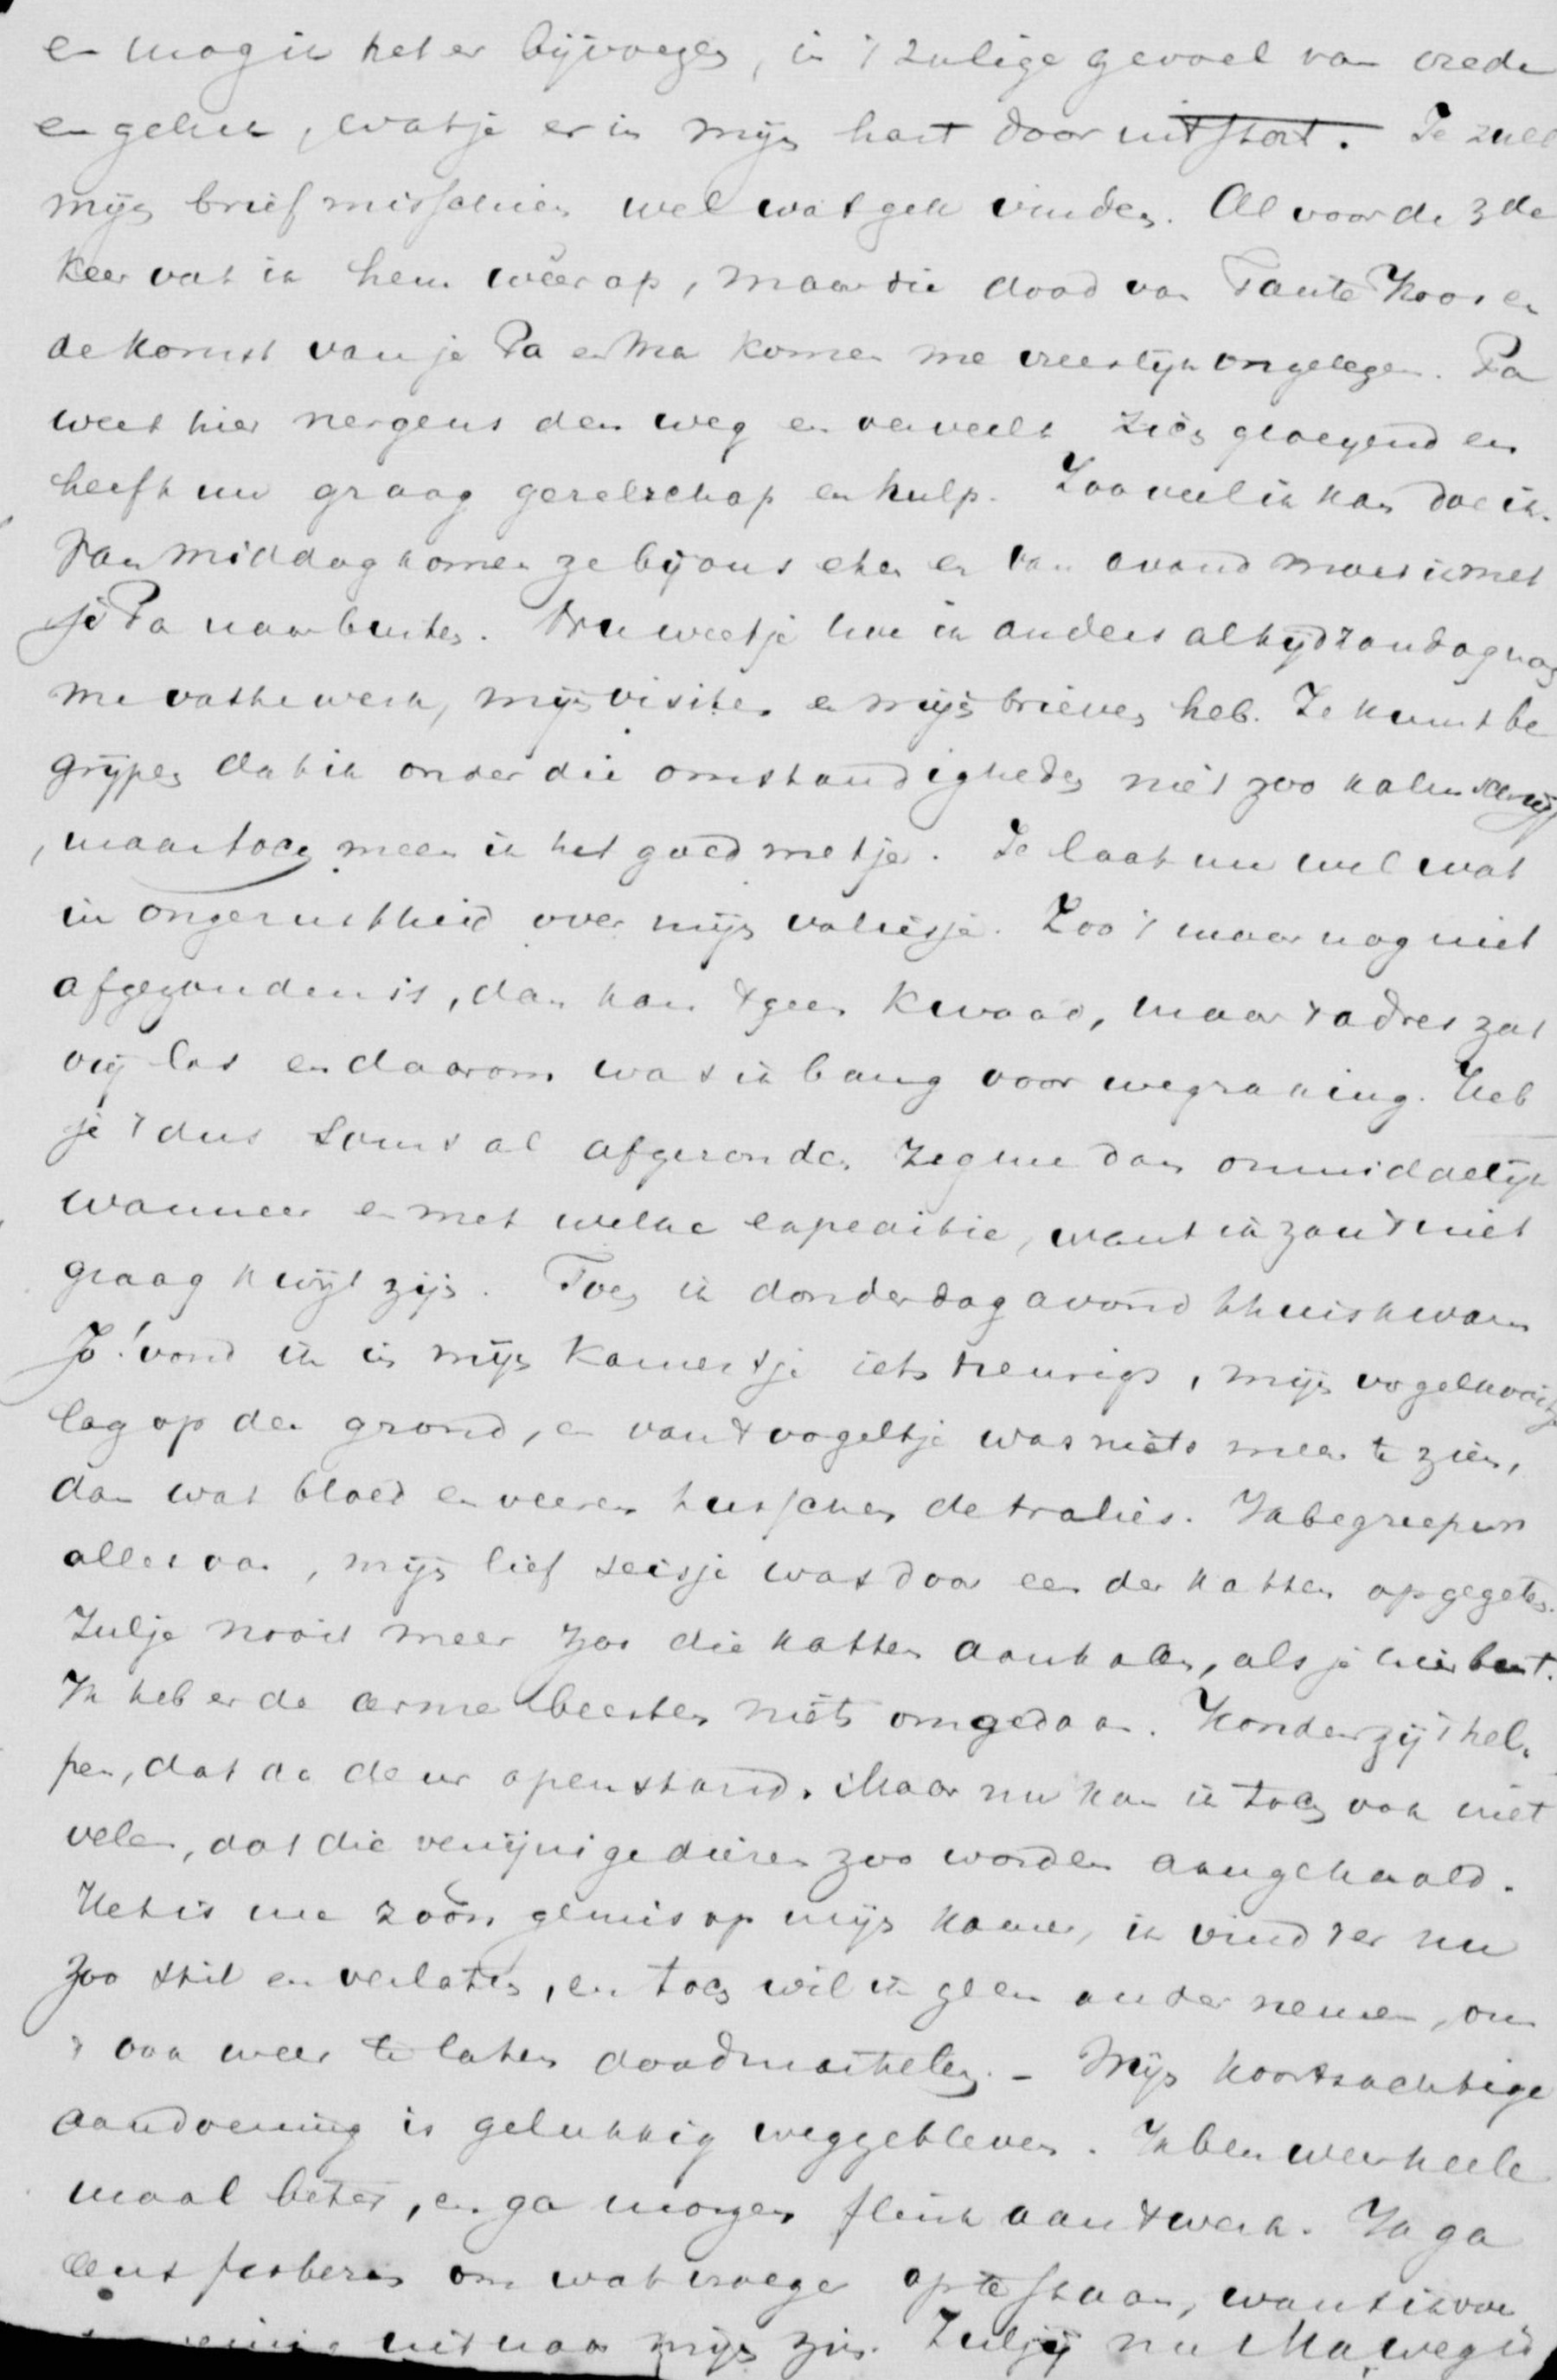 en mag ik het er bijvoegen, in 't zalige gevoel van vrede
en geluk, wat je er in mijn hart door uitstort. Je zult
mijn brief misschien wel wat gek vinden. Al voor de 3de
keer vat ik hem weer op, maar die dood van Tante Koos en
de komst van je Pa en Ma komen me vreeslijk ongelegen. Pa
weet hier nergens den weg en verveelt zich gloeyend en
heeft nu graag gezelschap en hulp. Zooveel ik kan doe ik.
Van middag komen ze bij ons eten en van avond moet ik met
je Pa naar buiten. Nu weet je hoe ik anders altijd zondags nog
me vaste werk, mijn visites en mijn brieven heb. Je kunt be
grijpen dat ik onder die omstandigheden niet zoo kalm schrijf
, maar toch meen ik het goed met je. Je laat me wel wat
in ongerustheid over mijn valiesje. Zoo 't maar nog niet
afgezonden is, dan kan 't geen kwaad, maar 't adres zat
vrij los en daarom was ik bang voor wegraking. Heb
je 't dus soms al afgezonden zeg me dan onmiddelijk
wanneer en met welke expeditie, want ik zou 't niet
graag kwijt zijn. Toen ik donderdag avond thuiskwam
Jo! vond ik in mijn kamertje iets treurigs, mijn vogelkooitje
lag op den grond, en van 't vogeltje was niets meer te zien,
dan wat bloed en veeren tusschen de tralies. Ik begreep er
alles van, mijn lief seisje was door een der katten opgegeten.
Zul je nooit meer zoo die katten aanhalen, als je hier bent.
Ik heb er de arme beesten niets om gedaan. Konden zij 't hel-
pen, dat de deur openstond. Maar nu kan ik toch ook niet
velen, dat die venijnige dieren zoo worden aangehaald.
Het is me zoo'n gemis op mijn kamer, ik vind 't er nu
zoo stil en verlaten, en toch wil ik geen ander nemen, om
't ook weer te laten doodmartelen. - Mijn koortsachtige
aandoening is gelukkig weggebleven. Ik ben weer heele
maal beter, en ga morgen flink aan 't werk. Ik ga
eens probeeren om wat vroeger op te staan, want ik
weinig uit naar mijn zin. Zul jij nu Ma